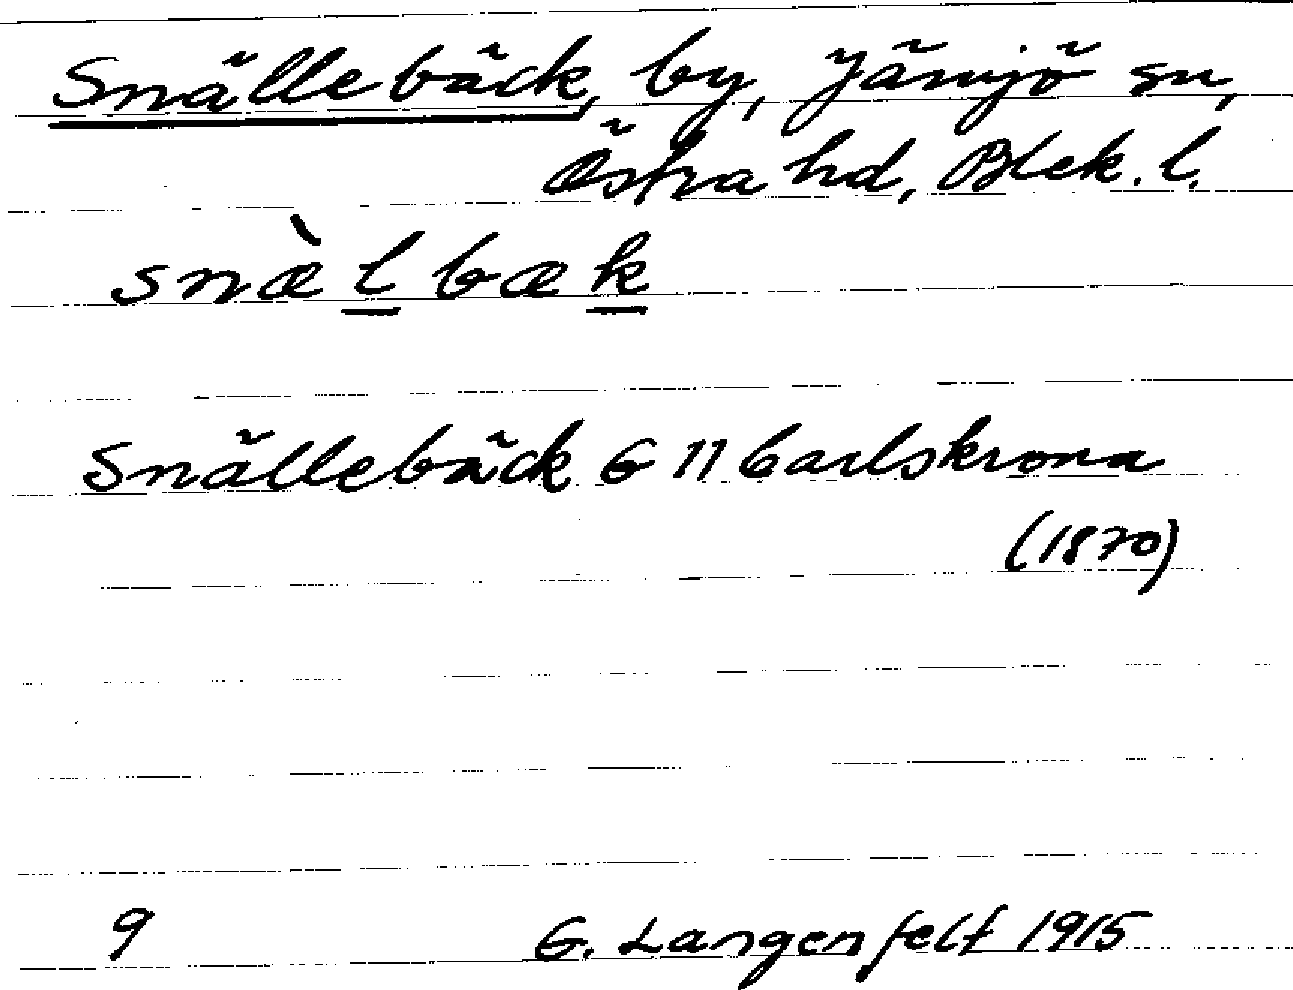 Snällebäck, by, Jämjö sn,
Östra hd, Blek. l.
snæ̀lbæk
Snällebäck G 11 Carlskrona
(1870)
9 G. Langenfelt 1915